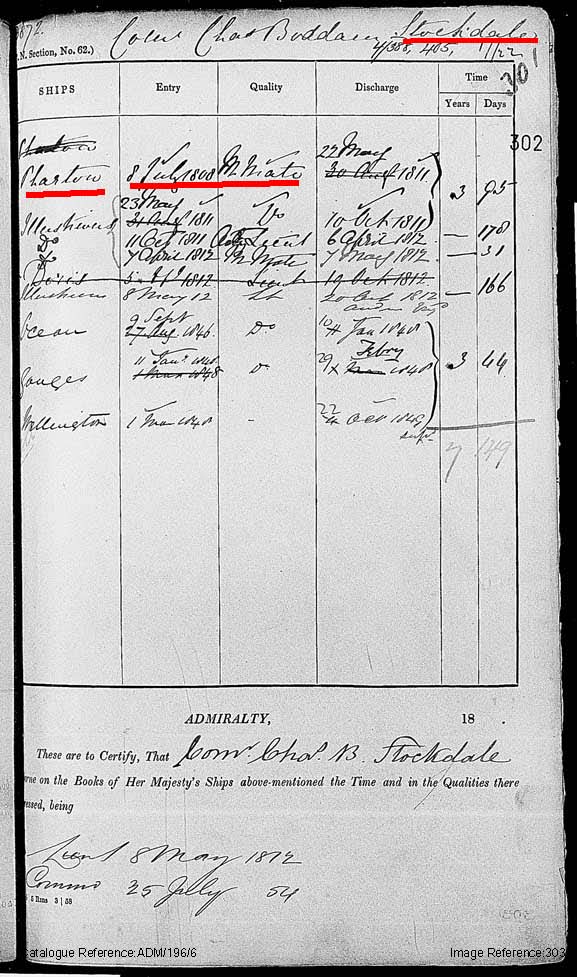 1872.
Comr Chas Boddam Stockdale
N. Section, No. 62.)
4/388, 405, 1/22
301
SHIPS Entry Quality Discharge Time
Years Days
302
22 May
Phaeton 8 July 1808 M. Mate 30 Augt 1811 3 95
23 May
Illustrious 31 Augt 1811 Do 10 Oct 1811
Do 11 Oct 1811 Lieut 6 April 1812 — 178
Do 7 April 1812 M Mate 7 May 1812 — 31
Doris 1812 Lieut 19 Oct 1812
Illustrious 8 May 12 Lt 20 Oct 1812 — 166
9 Sept
Ocean 27 Aug 1846 Do 10 Jan 1848
11 Jany 1848 29 Febry
Ganges 1 Mar 1848 Do 1848 3 44
22
Wellington 1 Mar 1848 - Oct 1849
7 149
ADMIRALTY, 18 .
These are to Certify, That Comr. Chas. B. Stockdale
rne on the Books of Her Majesty's Ships above-mentioned the Time and in the Qualities there
essed, being
Lieut 8 May 1812
Comm 25 July 54
5 Rms 3 | 58
Catalogue Reference:ADM/196/6 Image Reference:303